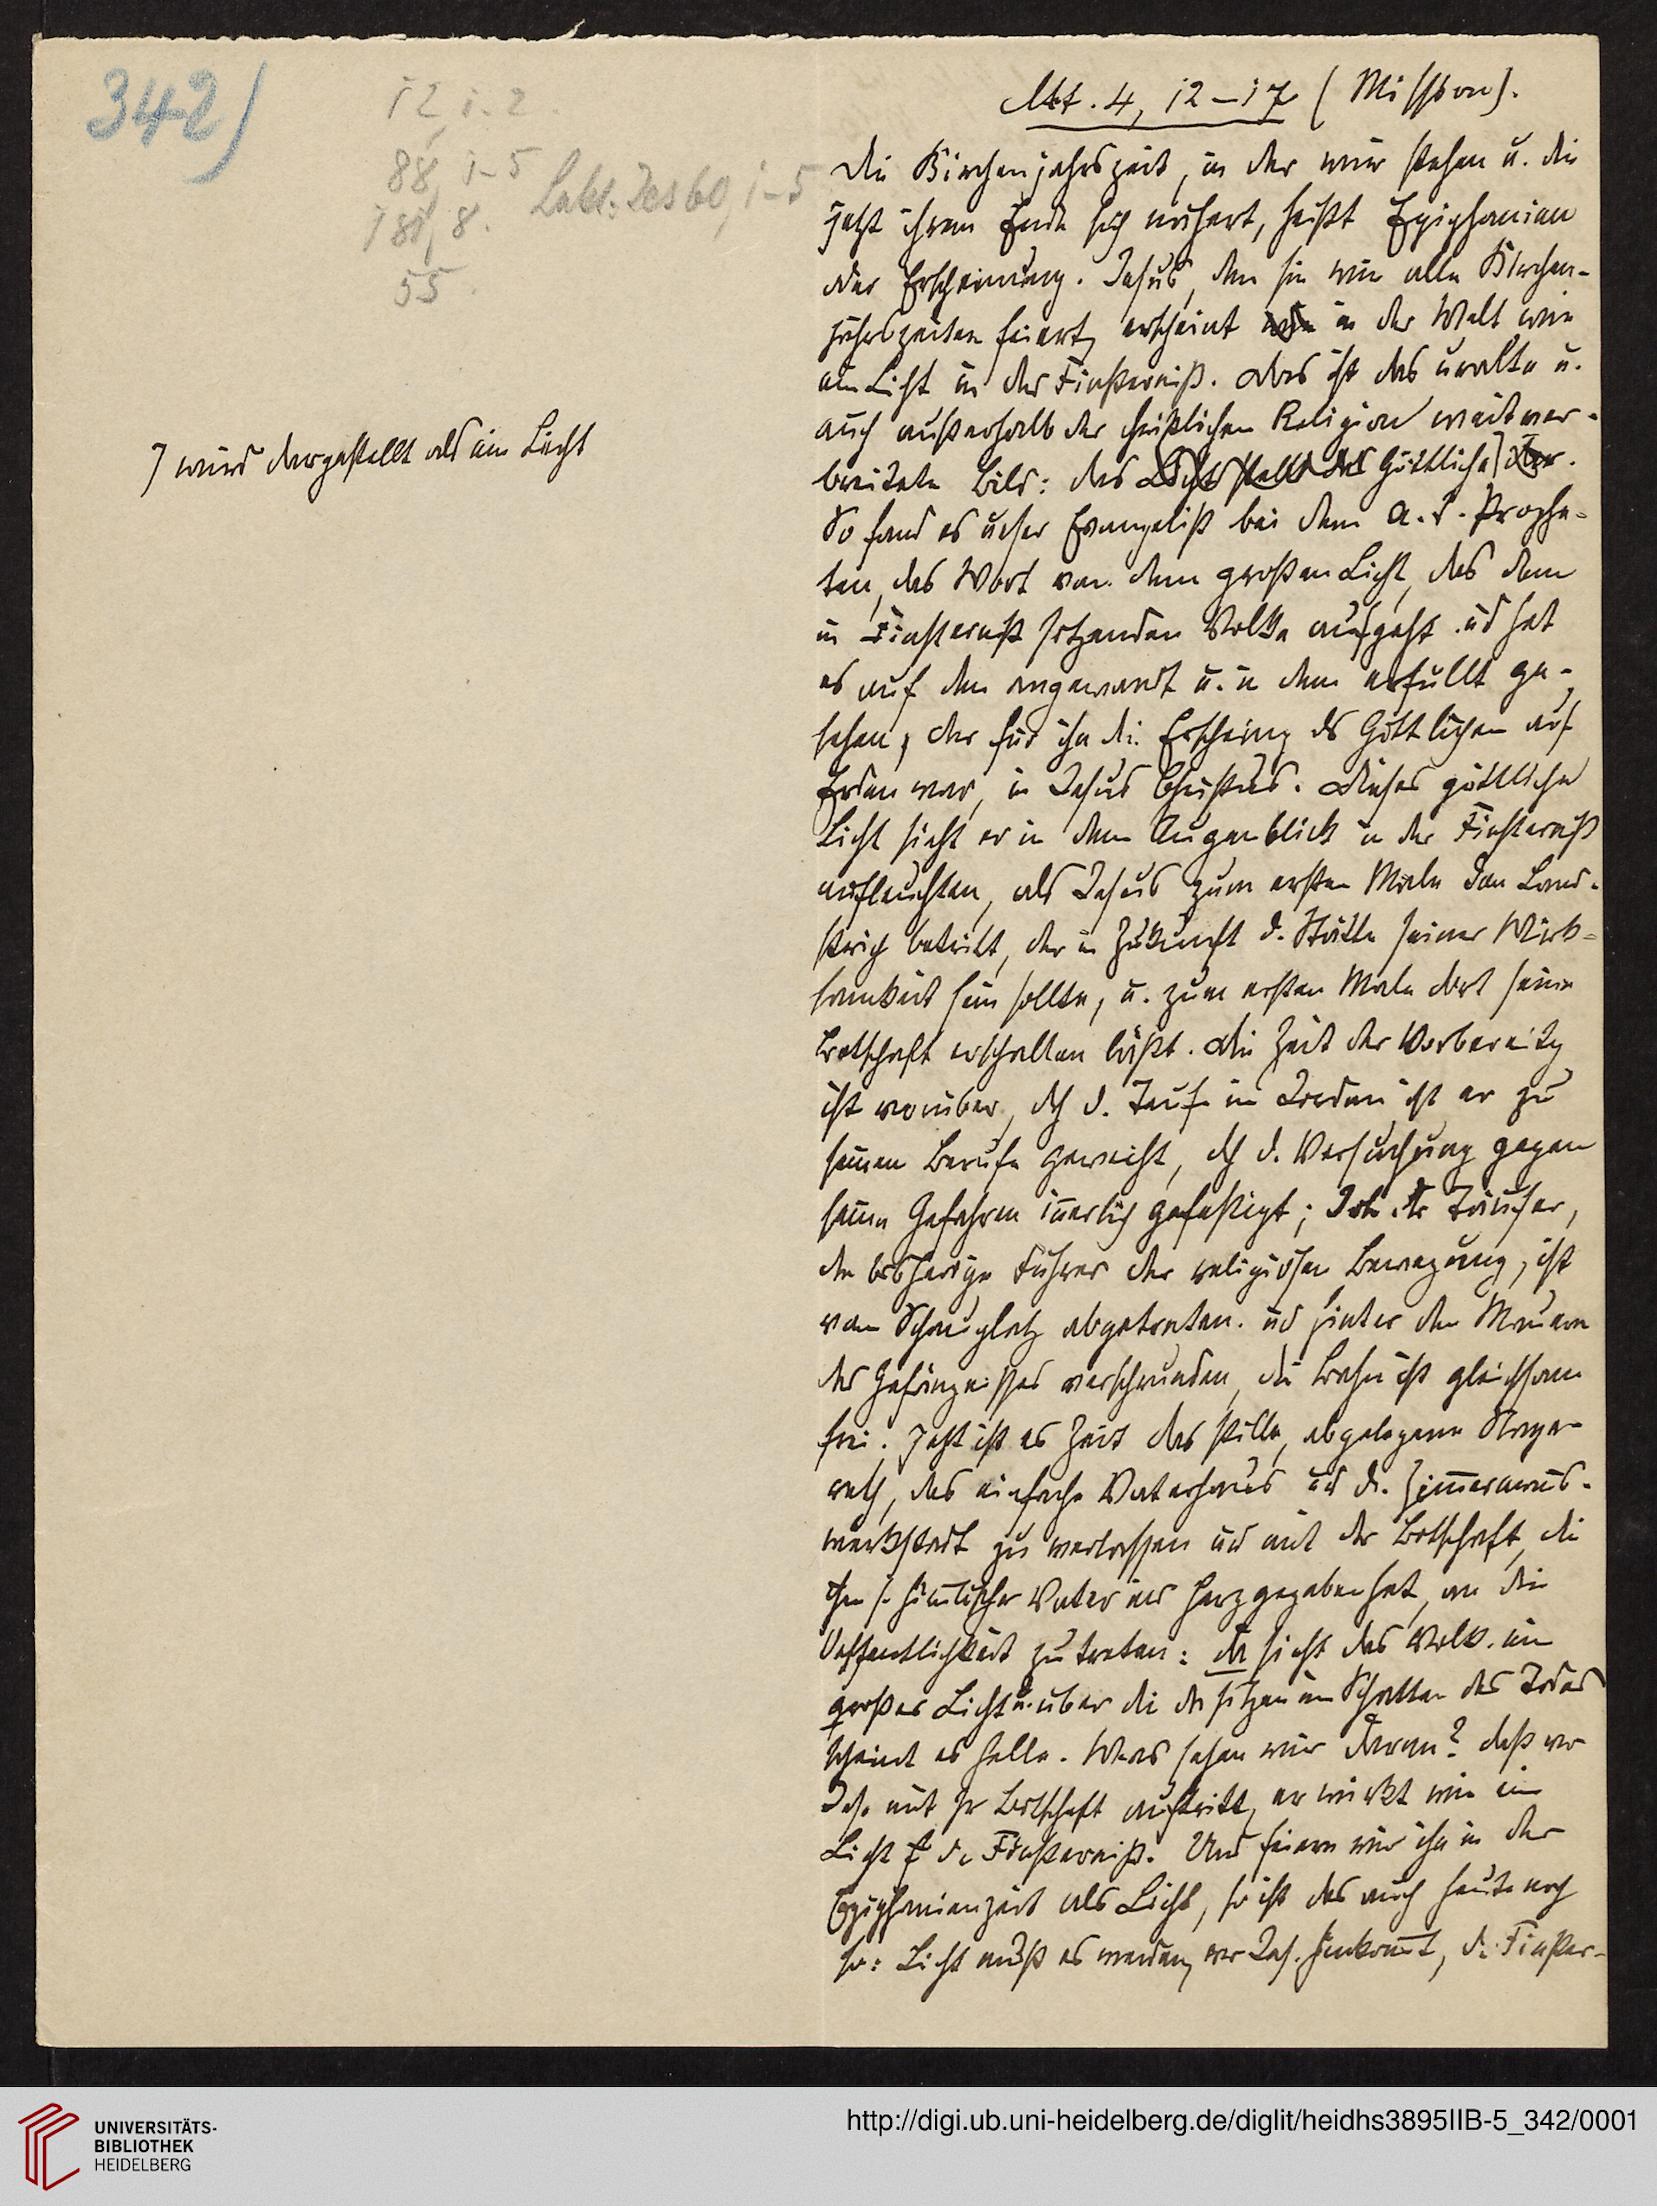 342)
12, 1-2.
88, 1-5
181, 8.
55.
Lekt. Jes 60, 1-5
] wird dargestellt als ein Licht
Mt. 4, 12-17 (Mission).
Die Kirchenjahrszeit, in der wir stehen u. die
jetzt ihrem Ende sich nähert, heißt Epiphanien
oder Erscheinung. Jesus, den sie wie alle Kirchen-
jahrszeiten feiert, erscheint in der Welt wie
ein Licht in der Finsterniß. Das ist das uralte u.
auch außerhalb der christlichen Religion weitver-
breitete Bild: das Licht stellt das Göttliche] dar.
So fand es unser Evangelist bei dem A.T. Prophe-
ten, das Wort von dem großen Licht, das dem
in Finsterniß sitzenden Volke aufgeht und hat
es auf den angewandt u. in dem erfüllt ge-
sehen, der für ihn die Erscheinung des Göttlichen auf
Erden war, in Jesus Christus. Dieses göttliche
Licht sieht er in dem Augenblick in der Finsterniß
aufleuchten, als Jesus zum ersten Male den Land-
strich betritt, der in Zukunft d. Stätte seiner Wirk-
samkeit sein sollte, u. zum ersten Male dort seine
Botschaft erschallen läßt. Die Zeit der Vorbereitg
ist vorüber, dch d. Taufe im Jordan ist er zu
seinem Berufe geweiht, dch d. Versuchung gegen
seine Gefahren innerlich gefestigt; Joh. der Täufer,
der bisherige Führer der religiösen Bewegung, ist
vom Schauplatz abgetreten und hinter den Mauern
des Gefängnisses verschwunden, die Bahn ist gleichsam
frei. Jetzt ist es Zeit das stille, abgelegene Naza-
reth, das einfache Vaterhaus und die Zimmermanns-
werkstatt zu verlassen und mit der Botschaft, die
ihm s. himlischer Vater ins Herz gegeben hat, an die
Oeffentlichkeit zu treten: da sieht das Volk ein
großes Licht u. über die da sitzen im Schatten des Todes
scheint es helle. Was sehen wir daran? daß wo
Jes. mit sr Botschaft auftritt, er wirkt wie ein
Licht in d. Finsterniß. Und feiern wir ihn in der
Epiphanienzeit als Licht, so ist das auch heute noch
so: Licht muß es werden, wo Jes. hinkommt, die Finster-
UNIVERSITÄTS-
BIBLIOTHEK
HEIDELBERG
http://digi.ub.uni-heidelberg.de/diglit/heidhs3895IIB-5_342/0001